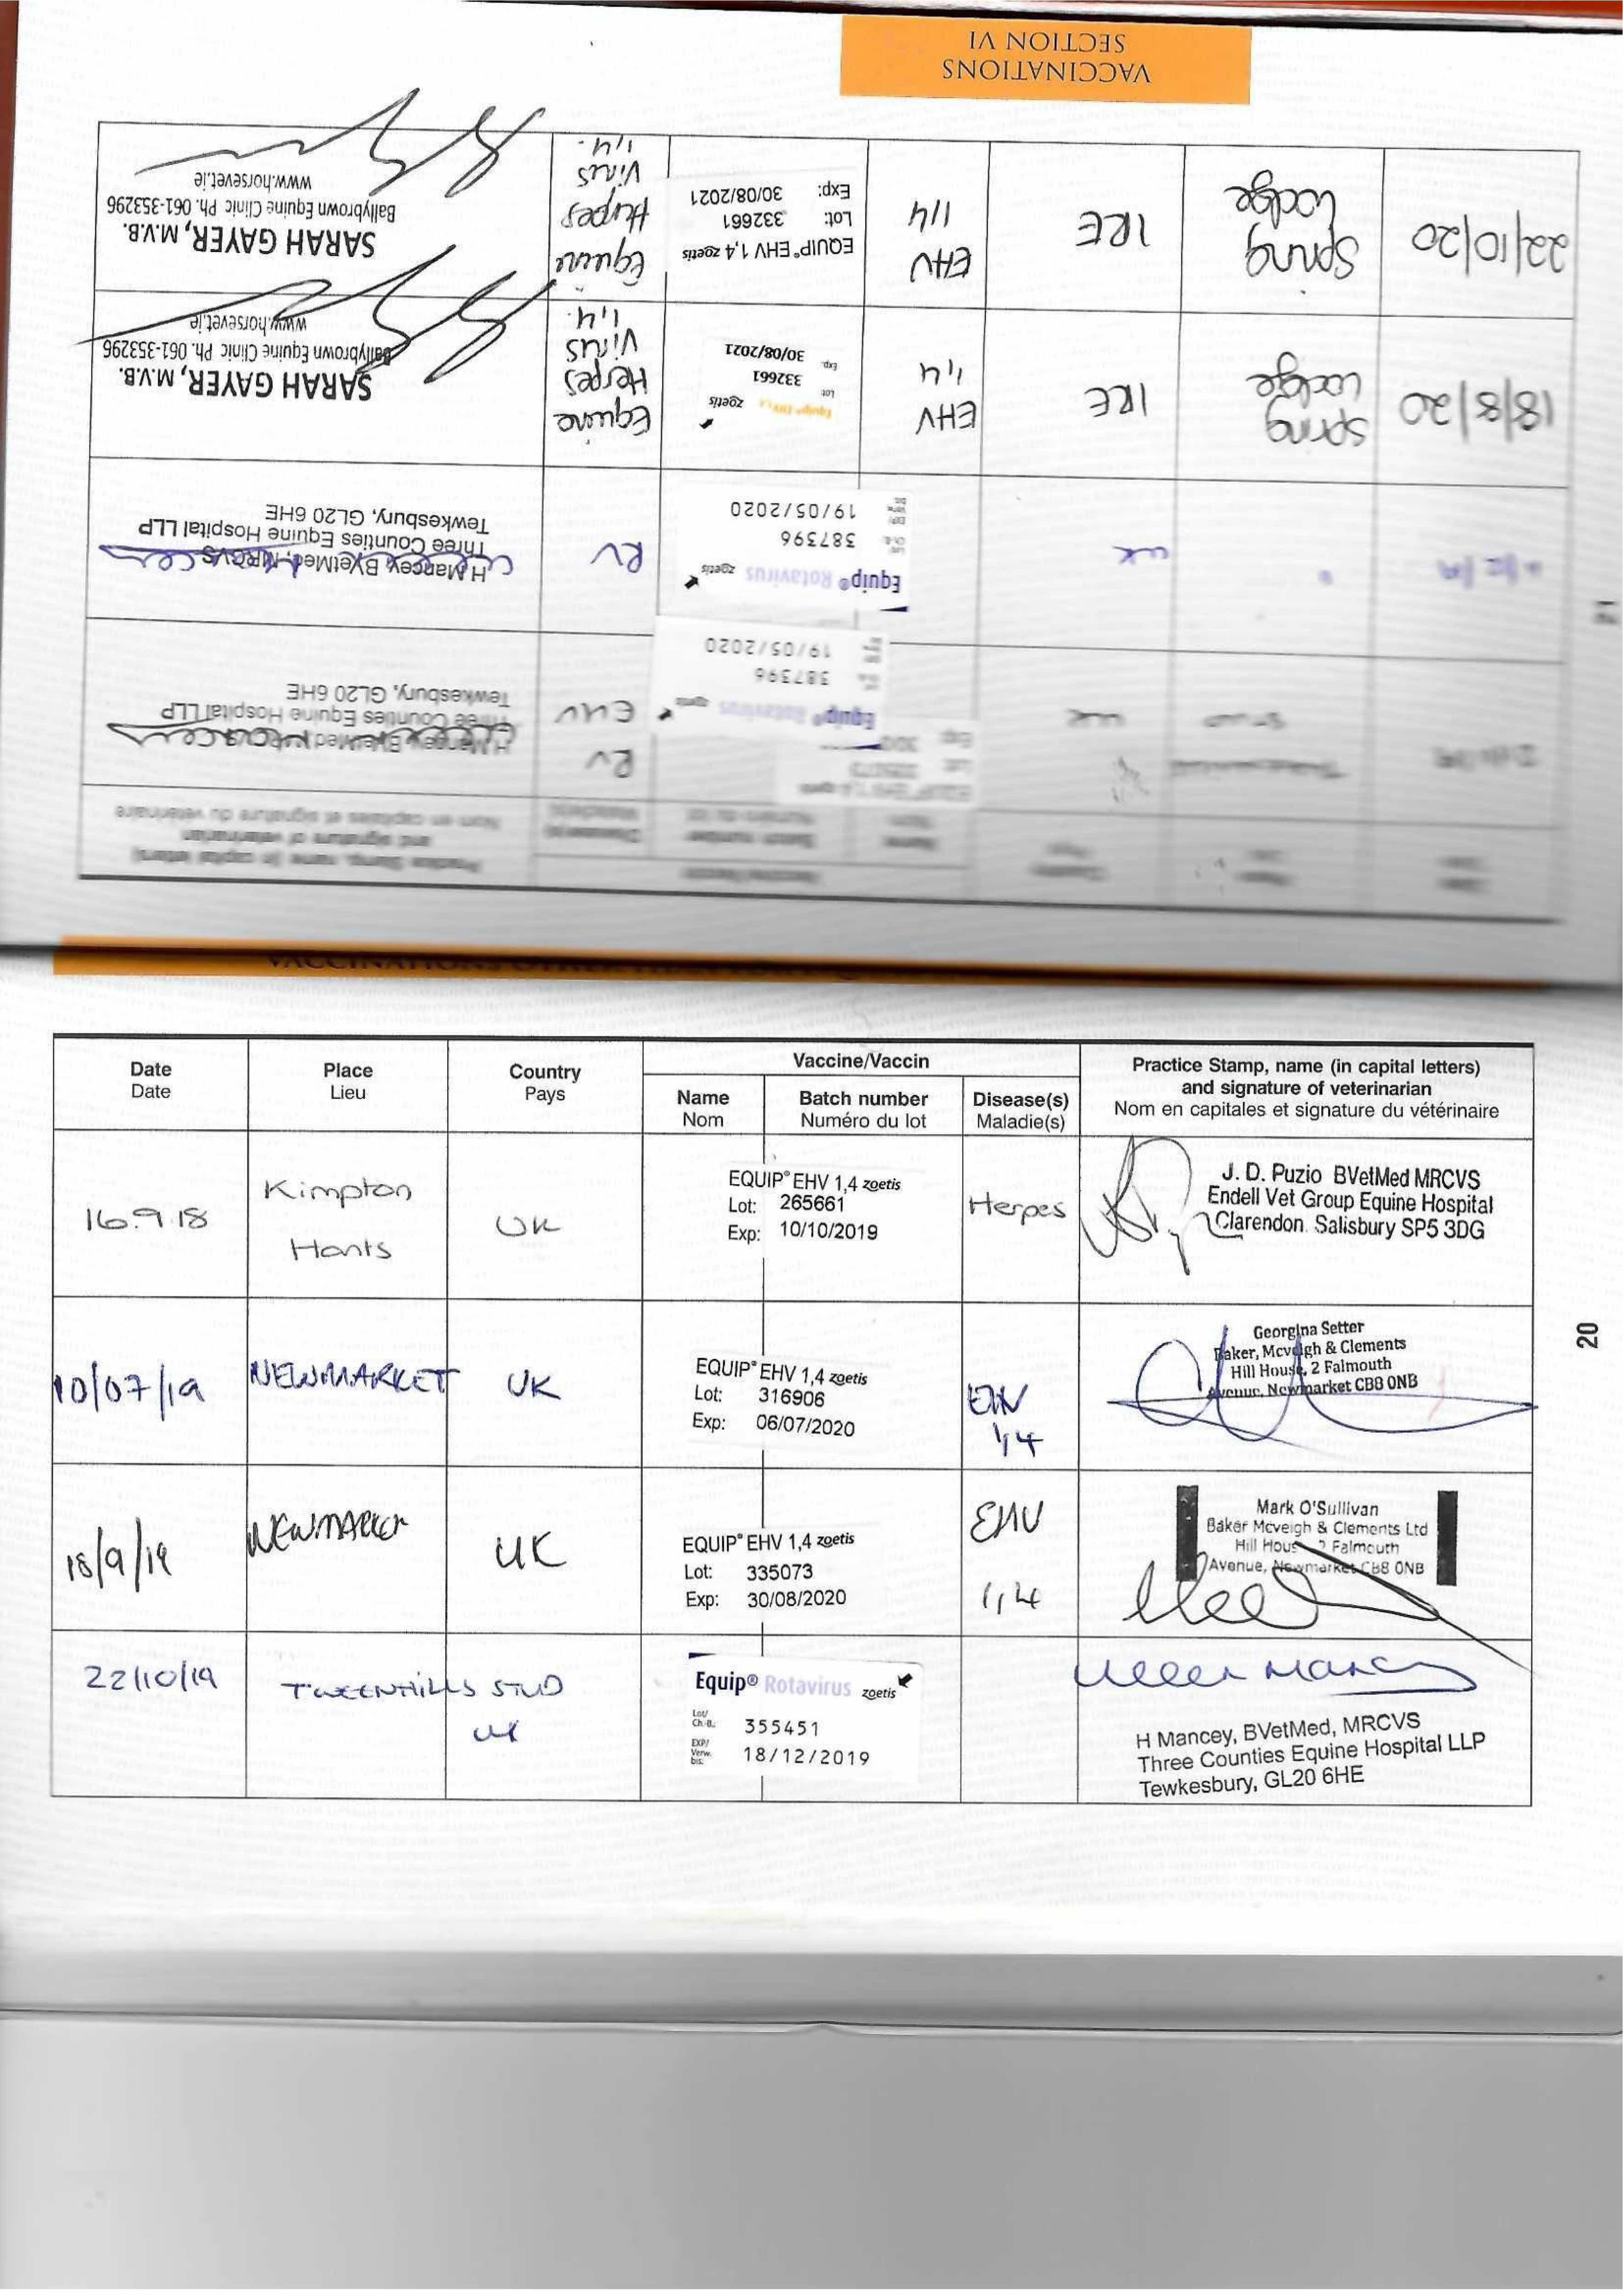 VACCINATIONS
SECTION VI
22/10/20
Spring
Lodge
IRE
EHV
1/4
EQUIP® EHV 1,4 zoetis
Lot: 332661
Exp: 30/08/2021
Equine
Herpes
Virus
1,4.
SARAH GAYER, M.V.B.
Ballybrown Equine Clinic Ph. 061-353296
www.horsevet.ie
18/8/20
Spring
Lodge
IRE
EHV
1,4
Equip® EHV 1,4
zoetis
Lot 332661
Exp. 30/08/2021
Equine
Herpes
Virus
1,4.
SARAH GAYER, M.V.B.
Ballybrown Equine Clinic Ph. 061-353296
www.horsevet.ie
UK
Equip® Rotavirus zoetis
387396
19/05/2020
RV
H Mancey, BVetMed, MRCVS
Three Counties Equine Hospital LLP
Tewkesbury, GL20 6HE
UK
Equip® Rotavirus zoetis
387396
19/05/2020
RV
EHV
H Mancey, BVetMed, MRCVS
Three Counties Equine Hospital LLP
Tewkesbury, GL20 6HE
Practice Stamp, name (in capital letters)
and signature of veterinarian
Nom en capitales et signature du vétérinaire
Date
Date
Place
Lieu
Country
Pays
Vaccine/Vaccin
Name
Nom
Batch number
Numéro du lot
Disease(s)
Maladie(s)
Practice Stamp, name (in capital letters)
and signature of veterinarian
Nom en capitales et signature du vétérinaire
16.9.18
Kimpton
Hants
UK
EQUIP® EHV 1,4 zoetis
Lot: 265661
Exp: 10/10/2019
Herpes
J. D. Puzio BVetMed MRCVS
Endell Vet Group Equine Hospital
Clarendon. Salisbury SP5 3DG
10/07/19
NEWMARKET
UK
EQUIP® EHV 1,4 zoetis
Lot: 316906
Exp: 06/07/2020
EHV
1,4
Georgina Setter
Baker, Mcveigh & Clements
Hill House, 2 Falmouth
Avenue, Newmarket CB8 0NB
20
18/9/19
NEWMARKET
UK
EQUIP® EHV 1,4 zoetis
Lot: 335073
Exp: 30/08/2020
EHV
1,4
Mark O'Sullivan
Baker Mcveigh & Clements Ltd
Hill House 2 Falmouth
Avenue, Newmarket CB8 0NB
22/10/19
TWEENHILLS STUD
UK
Equip® Rotavirus zoetis
Lot/
Ch.-B.: 355451
EXP/
Verw.
bis: 18/12/2019
Helen Mancey
H Mancey, BVetMed, MRCVS
Three Counties Equine Hospital LLP
Tewkesbury, GL20 6HE